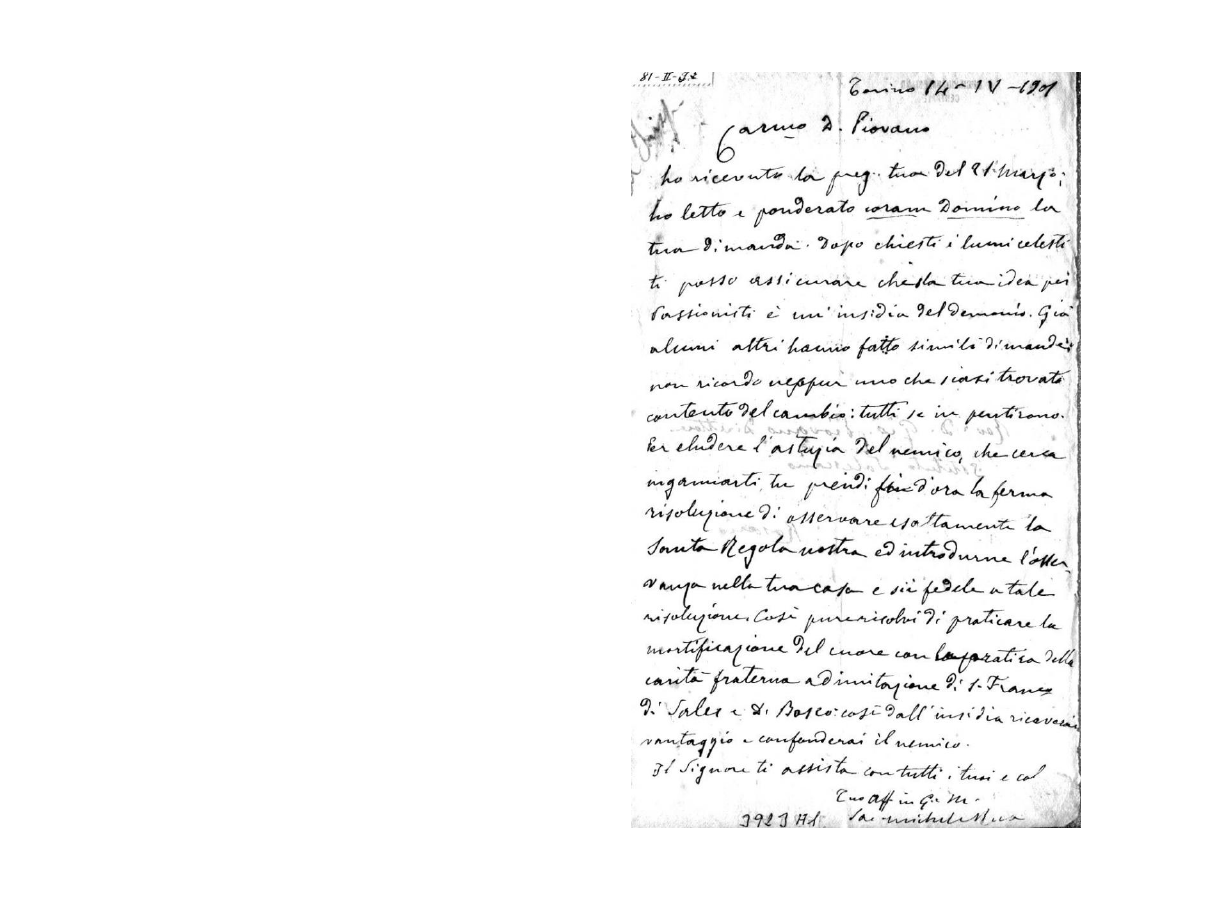 Torino 14-IV-1901
Carmo D. Piovano
ho ricevuto la preg. tua del 21 Marzo;
ho letto e ponderato coram Domino la
tua dimanda. Dopo chiesti i lumi celesti
ti posso assicurare che la tua idea pei
Passionisti è un' insidia del demonio. Già
alcuni altri hanno fatto simili dimande:
non ricordo neppur uno che siasi trovato
contento del cambio: tutti se ne pentirono.
Per eludere l'astuzia del nemico, che cerca
ingannarti, tu prendi fin d'ora la ferma
risoluzione di osservare esattamente la
Santa Regola nostra ed introdurne l'osser-
vanza nella tua casa e sii fedele a tale
risoluzione. Così pure risolvi di praticare la
mortificazione del cuore con la pratica della
carità fraterna ad imitazione di S. Franco
di Sales e D. Bosco: così dall' insidia ricaverai
vantaggio e confonderai il nemico.
Il Signore ti assista con tutti i tuoi e col
Tuo Aff in G. e M.
Sac. Michele Rua